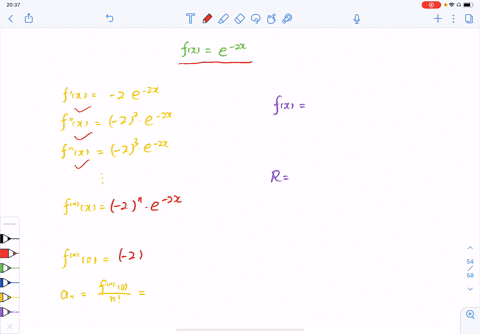 20:37
f(x) = e^{-2x}
f'(x) = -2 e^{-2x}
f''(x) = (-2)² · e^{-2x}
f'''(x) = (-2)³ e^{-2x}
⋮
f^{(n)}(x) = (-2)^n · e^{-2x}
f^{(n)}(0) = (-2)
a_n = \frac{f^{(n)}(0)}{n!} =
f(x) =
R =
54
/
58